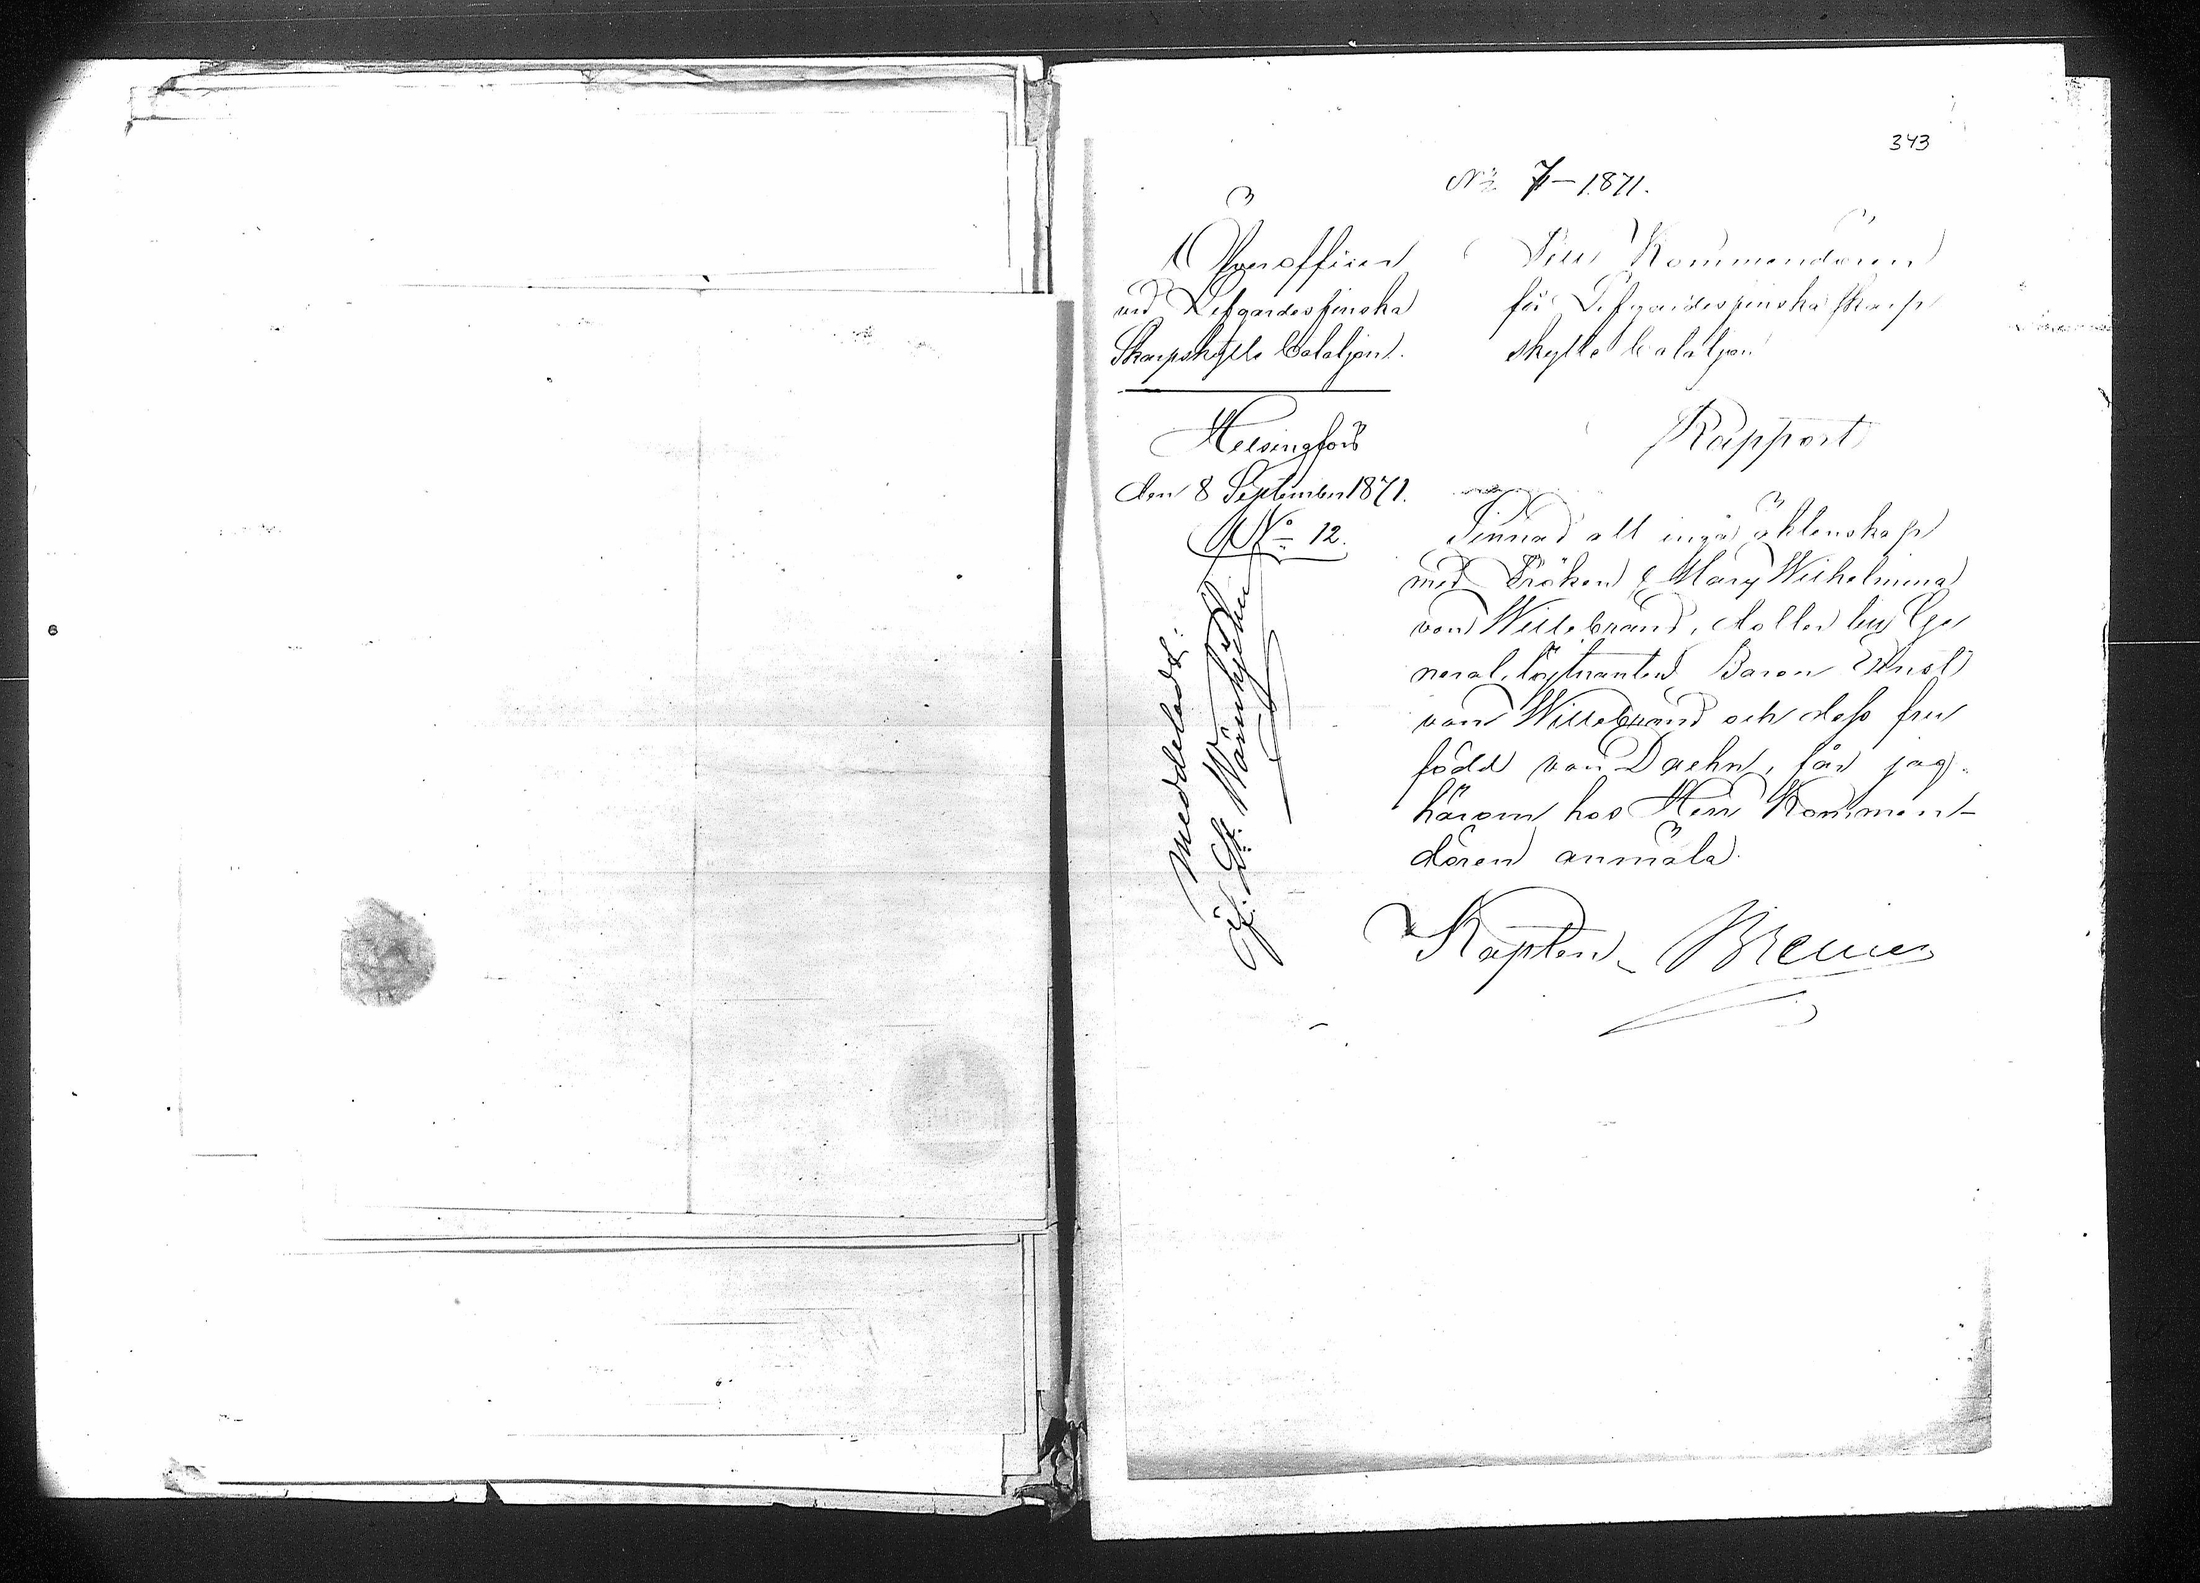 343
No 7 - 1871.
Öfverofficer
vid Lifgardes finska
Skarpskytte bataljon.
Helsingfors
den 8 September 1871.
No 12.
Meddeladt:
Till Kommendören
för Lifgardes finska skarp
skytte bataljon
Rapport
Sinnad att ingå äktenskap
med Fröken Mary Wilhelmina
von Willebrand, dotter till Ge
neral löjtnanten Baron Ernst
von Willebrand och dess fru
född von Daehn, får jag
härom hos Herr Kommen-
dören anmäla.
Kapten